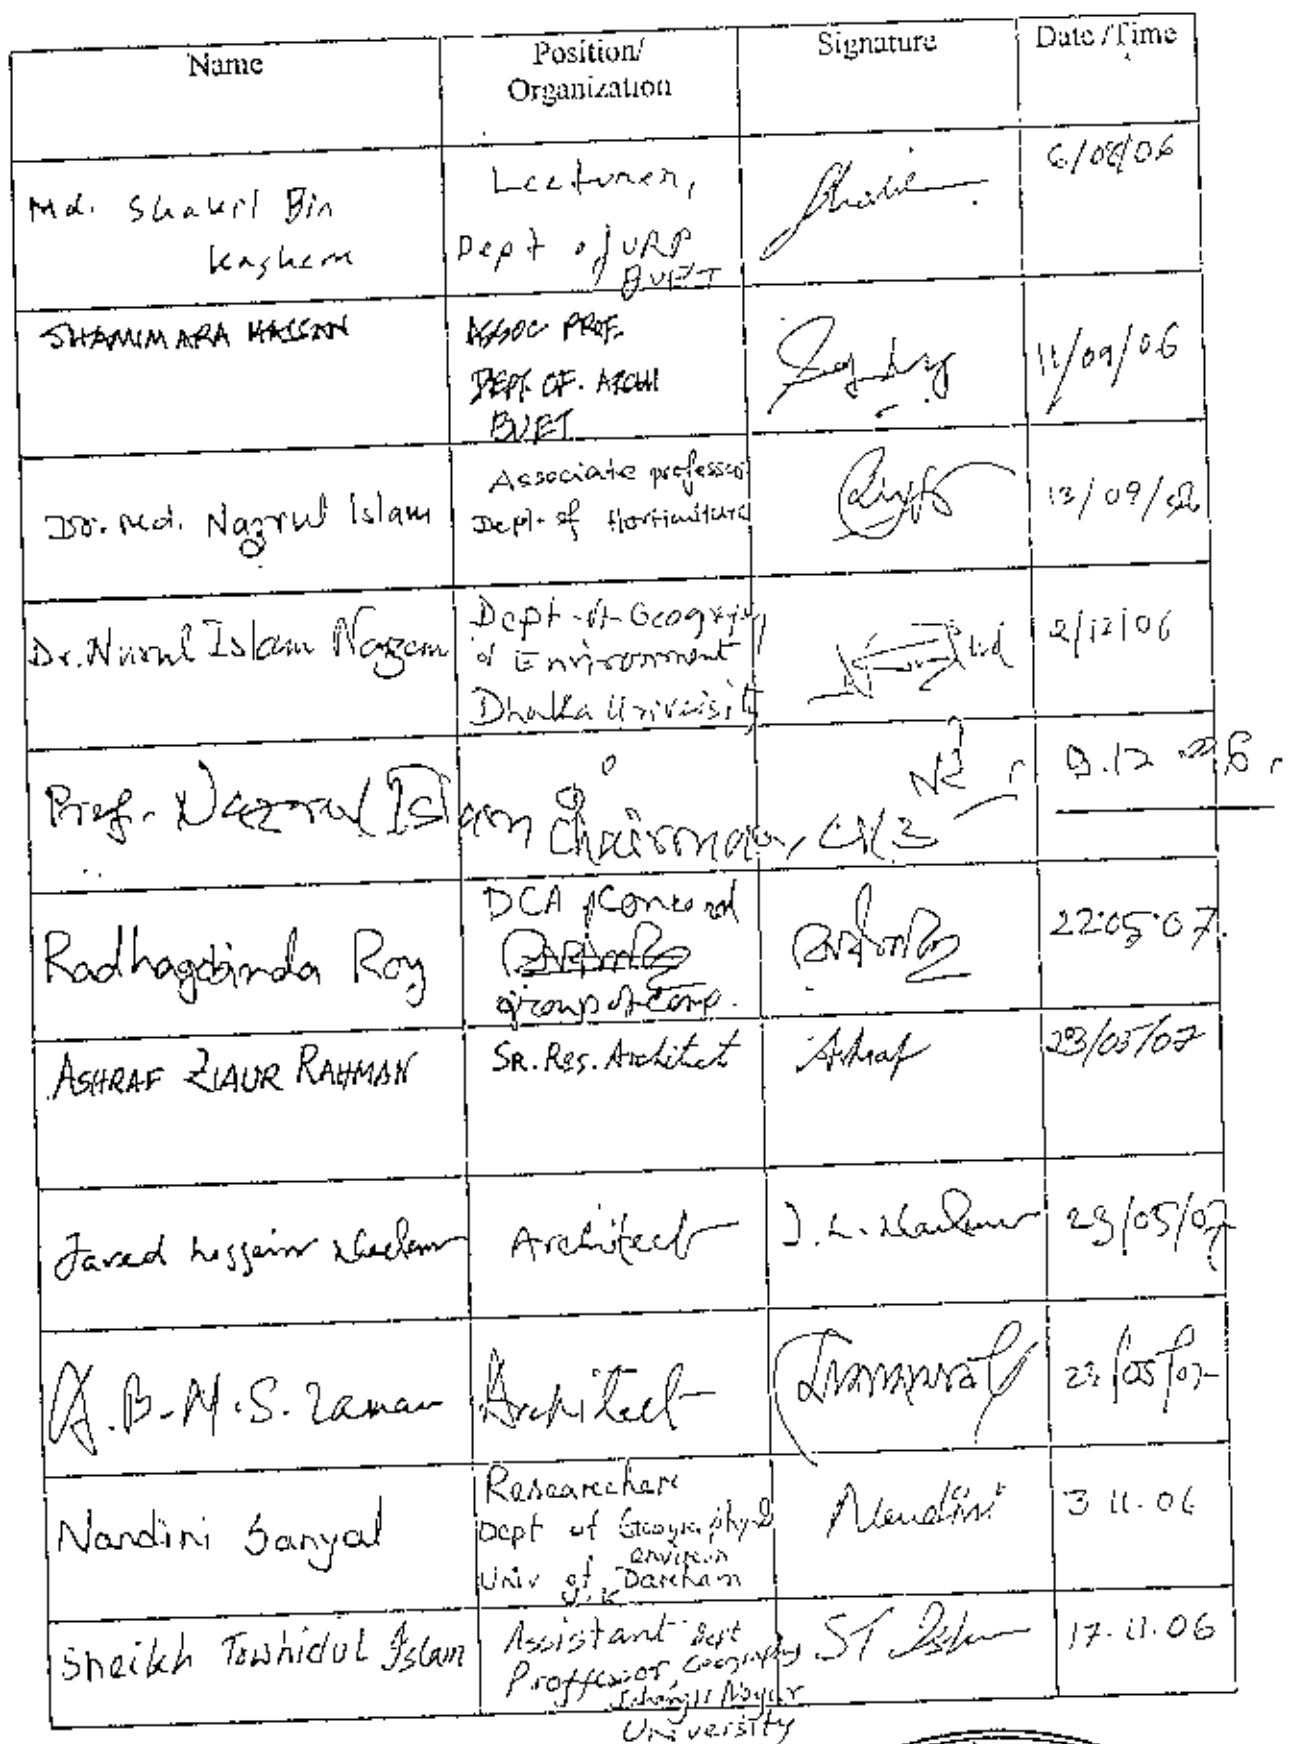 Name
Position/
Organization
Signature
Date /Time
Md. Shakil Bin
Kashem
Lecturer,
Dept of URP
BUET
6/08/06
SHAMIM ARA HASSAN
ASSOC PROF.
DEPT. OF. ARCHI
BUET
11/09/06
Dr. Md. Nazrul Islam
Associate professor
Dept. of Horticulture
13/09/06
Dr. Nurul Islam Nazem
Dept of Geography
& Environment
Dhaka University
2/12/06
Prof. Nazrul Islam
Chairman,
Radhagobinda Roy
DCA, Concord
group of Comp.
22.05.07.
ASHRAF ZIAUR RAHMAN
SR. Res. Architect
Ashraf
23/05/07
Javed Hossain
Architect
23/05/07
A.B.M.S. Zaman
Architect
23/05/07
Nandini Sanyal
Researcher
Dept of Geography &
environ
Univ of Darham
Nandini
3 11.06
Sheikh Towhidul Islam
Assistant Dept
Proffessor, Geography
Jahangir Nagar
University
ST Islam
17.11.06